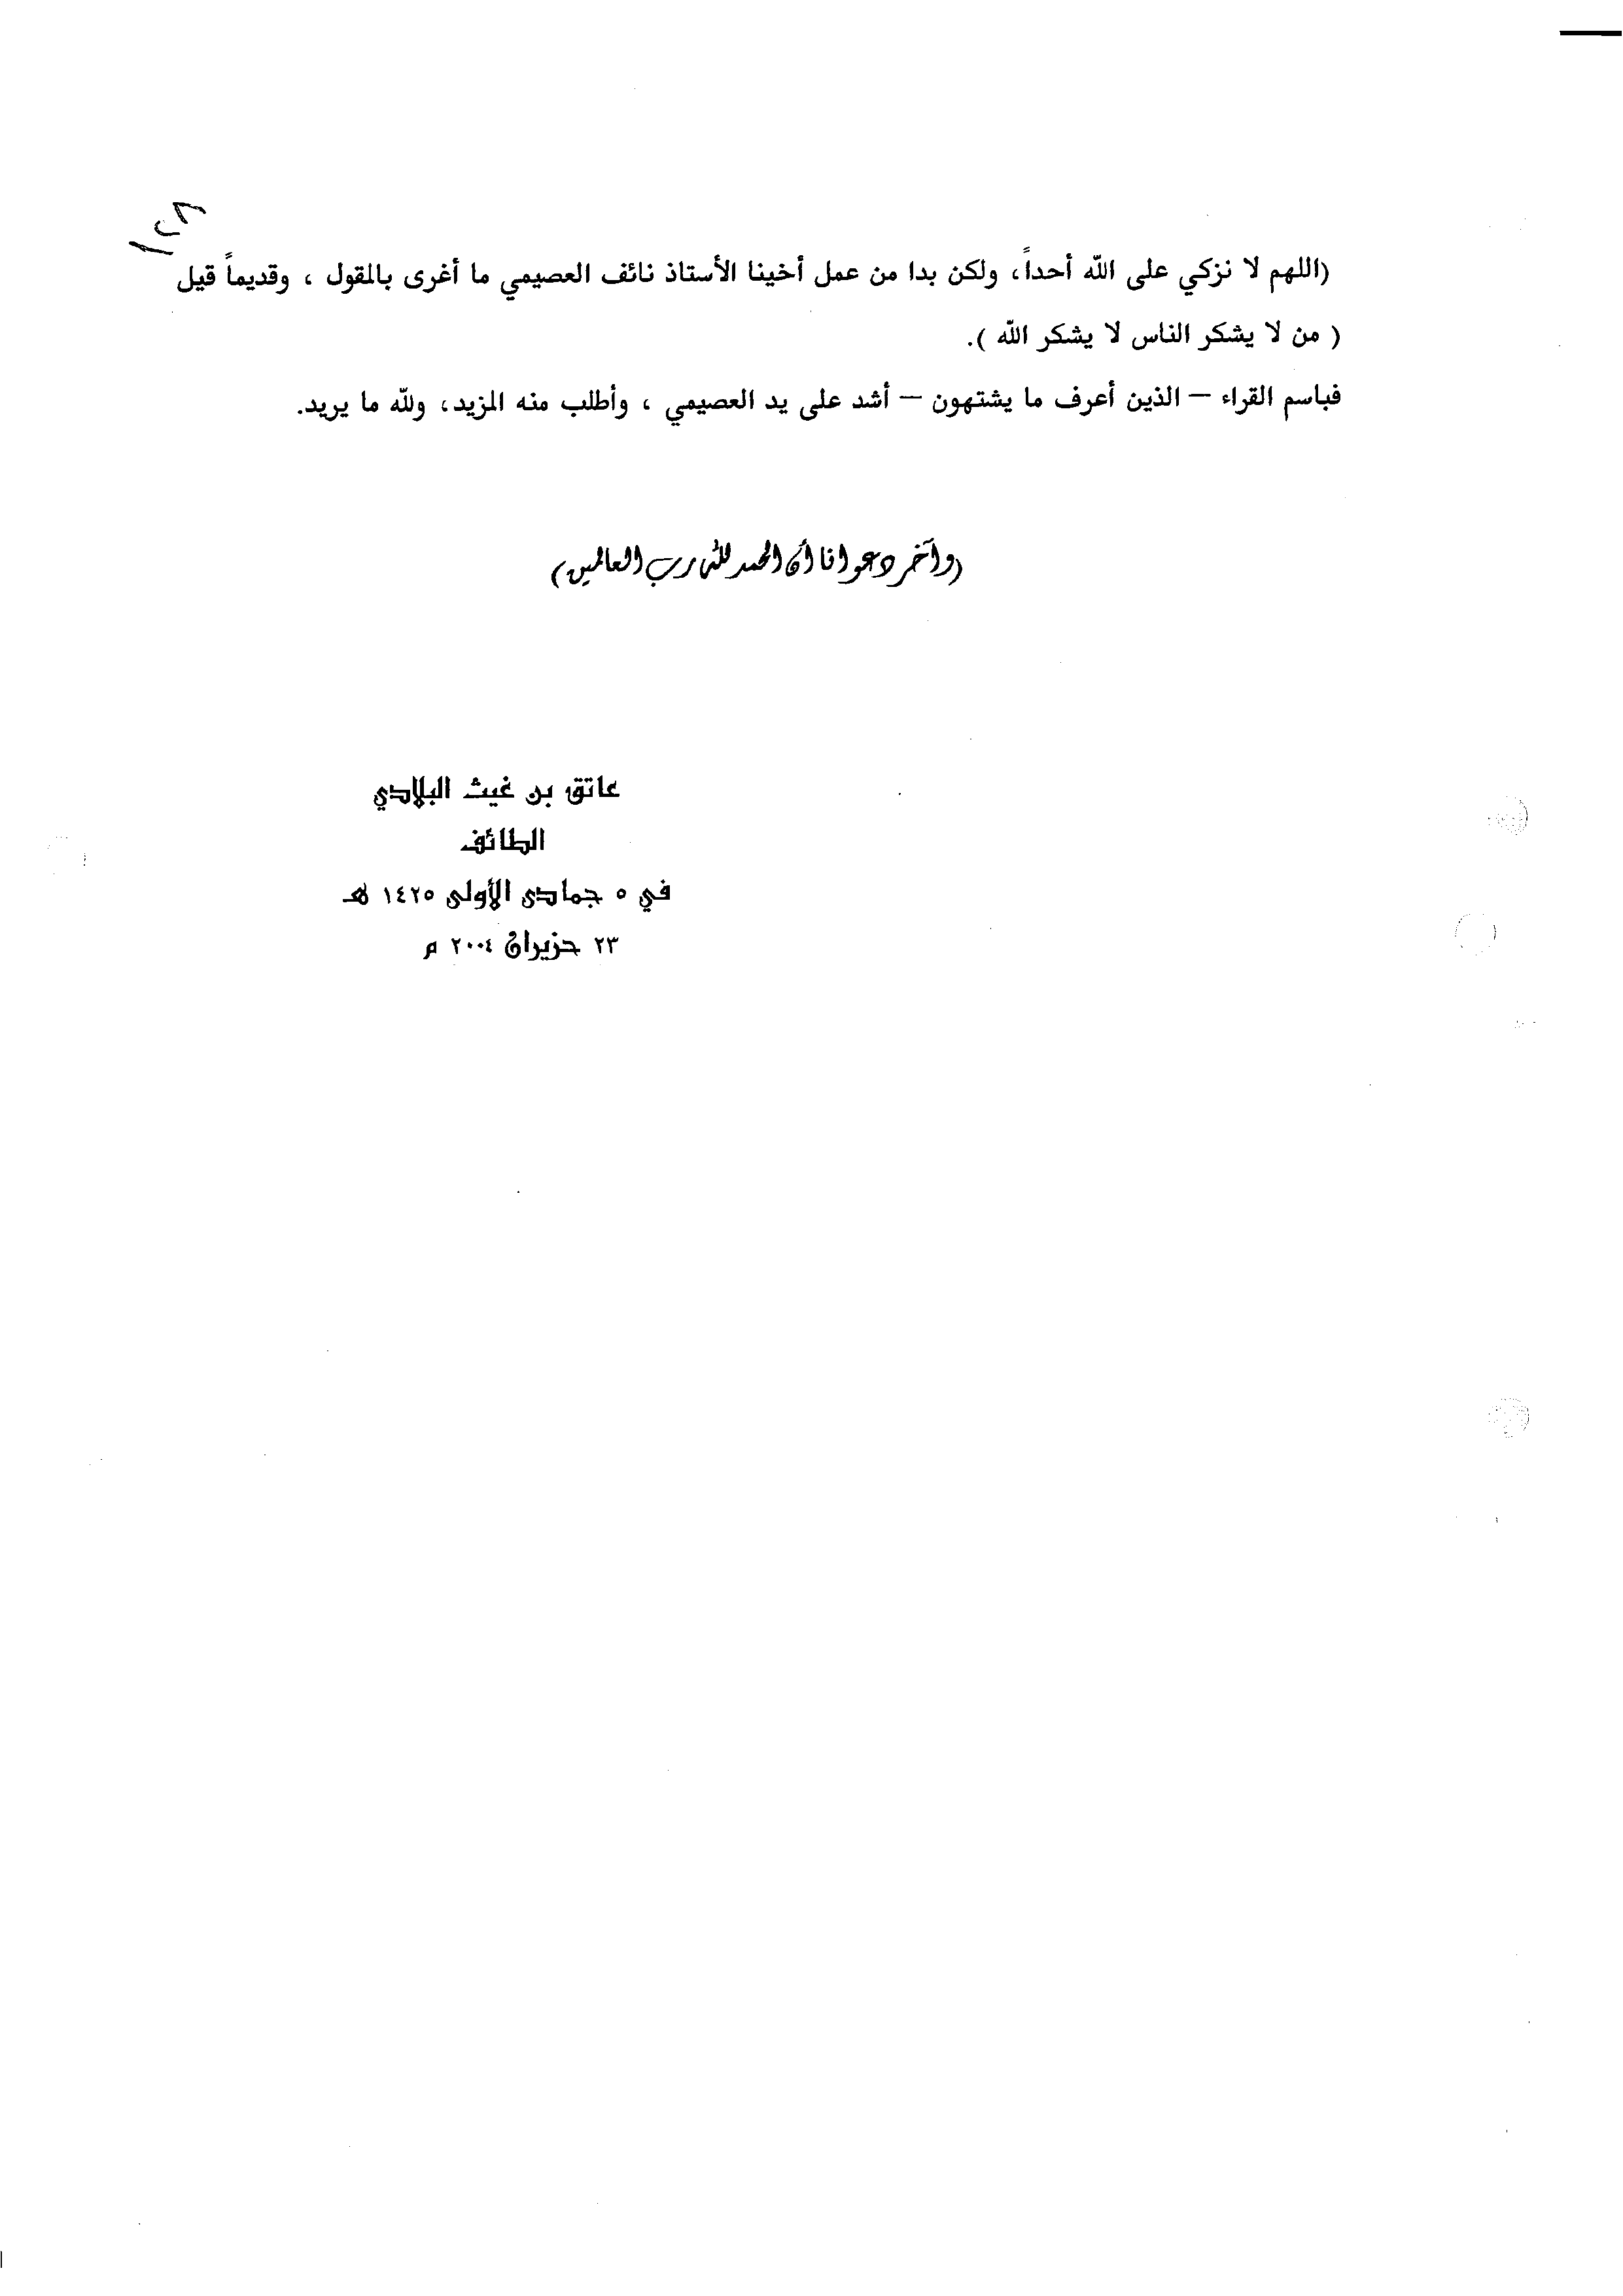 ١٢٨
(اللهم لا نزكي على الله أحداً، ولكن بدا من عمل أخينا الأستاذ نائف العصيمي ما أغرى بالمقول ، وقديماً قيل
( من لا يشكر الناس لا يشكر الله ).
فباسم القراء – الذين أعرف ما يشتهون – أشد على يد العصيمي ، وأطلب منه المزيد، ولله ما يريد.
(وآخر دعوانا أن الحمد لله رب العالمين)
عاتق بن غيث البلادي
الطائف
في ٥ جمادى الأولى ١٤٢٥ هـ
٢٣ حزيران ٢٠٠٤ م